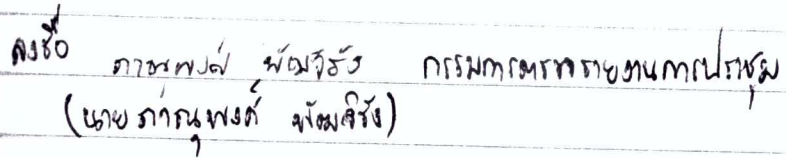 ลงชื่อ ภาณุพงศ์ กรรมการตรวจรายงานการประชุม
(นายภาณุพงศ์